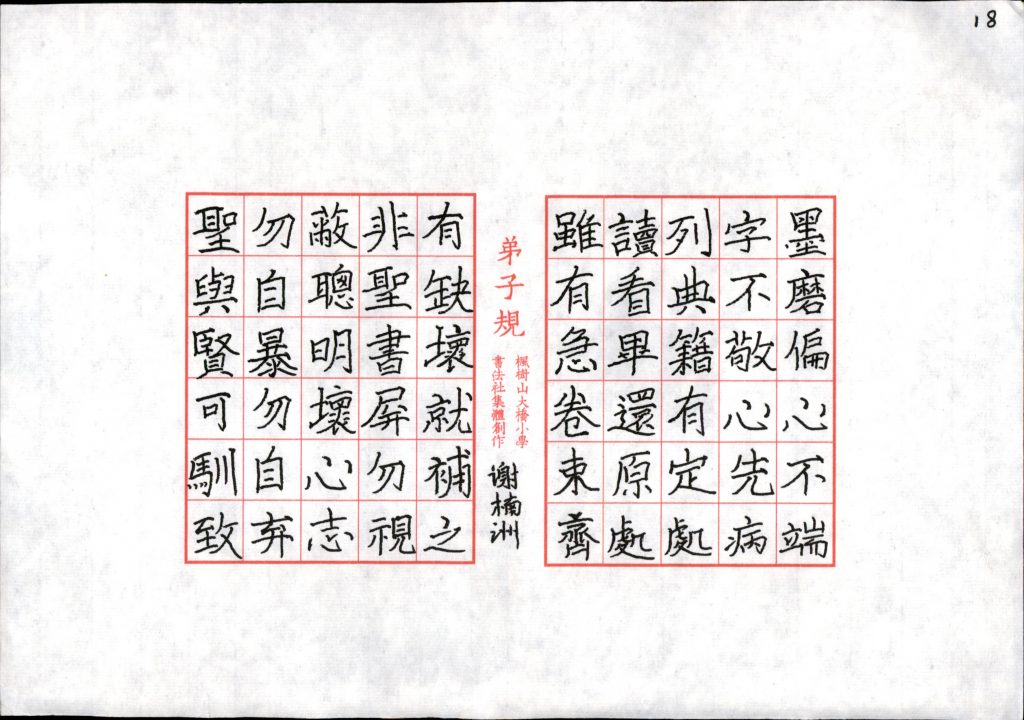 18
墨磨偏心不端
字不敬心先病
列典籍有定處
讀看畢還原處
雖有急卷束齊
弟子規
楓樹山大橋小學
書法社集體創作
谢楠洲
有缺壞就補之
非聖書屏勿視
蔽聰明壞心志
勿自暴勿自弃
聖與賢可馴致